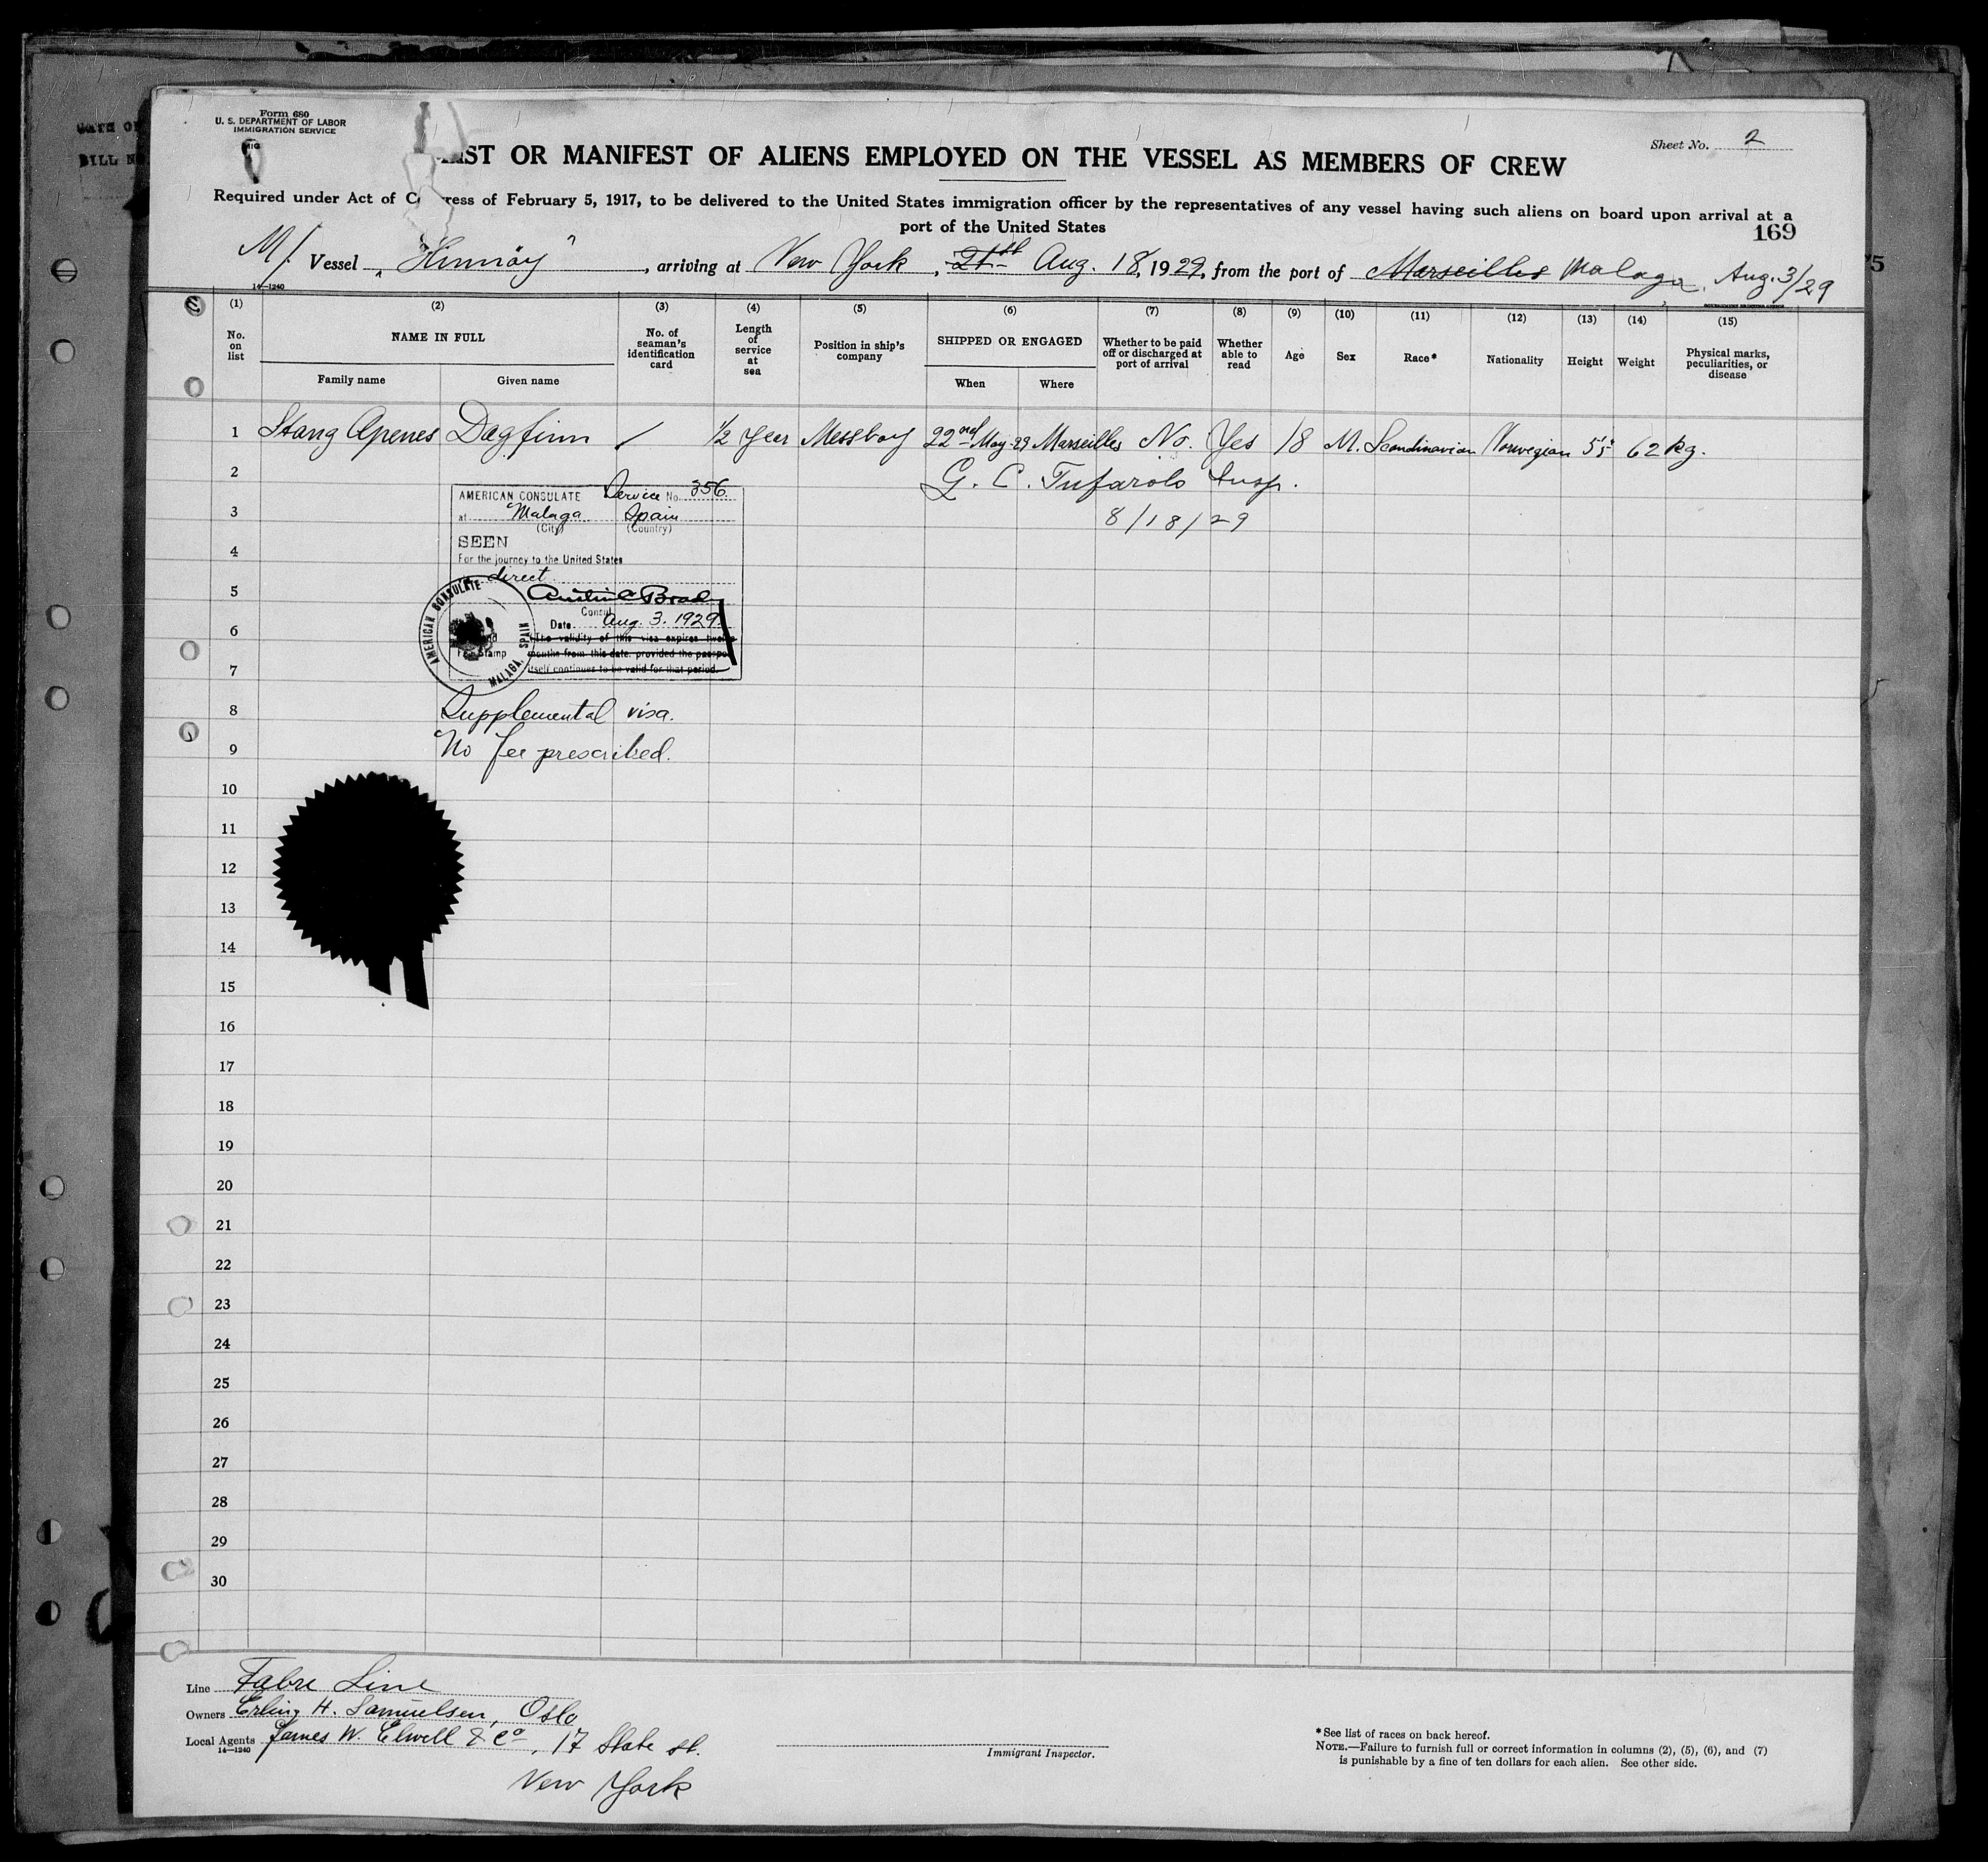 Form 680
U. S. DEPARTMENT OF LABOR
IMMIGRATION SERVICE
Sheet No. 2
LIST OR MANIFEST OF ALIENS EMPLOYED ON THE VESSEL AS MEMBERS OF CREW
Required under Act of Congress of February 5, 1917, to be delivered to the United States immigration officer by the representatives of any vessel having such aliens on board upon arrival at a
port of the United States
169
M/. Vessel "Hinnöy", arriving at New York, 21st Aug. 18, 1929, from the port of Marseilles Malaga, Aug. 3/29
14—1240
(1) (2) (3) (4) (5) (6) (7) (8) (9) (10) (11) (12) (13) (14) (15)
No. on list
NAME IN FULL
Family name
Given name
No. of seaman's identification card
Length of service at sea
Position in ship's company
SHIPPED OR ENGAGED
When
Where
Whether to be paid off or discharged at port of arrival
Whether able to read
Age
Sex
Race*
Nationality
Height
Weight
Physical marks, peculiarities, or disease
1 Stang Apenes Dagfinn / 1/2 year Messboy 22nd May 29 Marseilles No. Yes 18 M. Scandinavian Norwegian 5'5" 62 kg.
2 G. C. Tufarolo Insp.
3 8/18/29
AMERICAN CONSULATE Service No. 356
at Malaga Spain
(City) (Country)
SEEN
For the journey to the United States
direct
Consul
Date Aug. 3. 1929
The validity of this visa expires twelve
months from this date, provided the passport
itself continues to be valid for that period.
Fee Stamp
AMERICAN CONSULATE
MALAGA, SPAIN
4
5
6
7
8 Supplemental visa.
9 No fee prescribed.
10
11
12
13
14
15
16
17
18
19
20
21
22
23
24
25
26
27
28
29
30
Line Fabre Line
Owners Erling H. Samuelsen, Oslo
Local Agents James W. Elwell & Co, 17 State st.
14—1240
New York
Immigrant Inspector.
*See list of races on back hereof.
NOTE.—Failure to furnish full or correct information in columns (2), (5), (6), and (7)
is punishable by a fine of ten dollars for each alien. See other side.